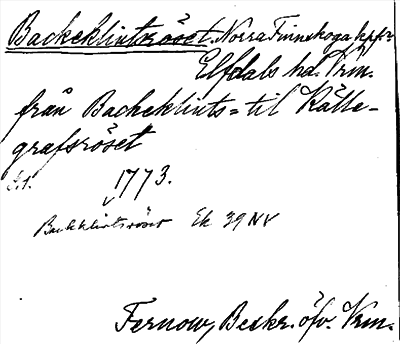 Backeklintsröset. Norra Finnskoga kpf:r
Elfdals hd. Vrm.
från Backeklints= til Källe-
grafsröset
s.1. 1773.
Backklintsröset Ek 39 NV
Fernow, Beskr. öfv. Vrm.